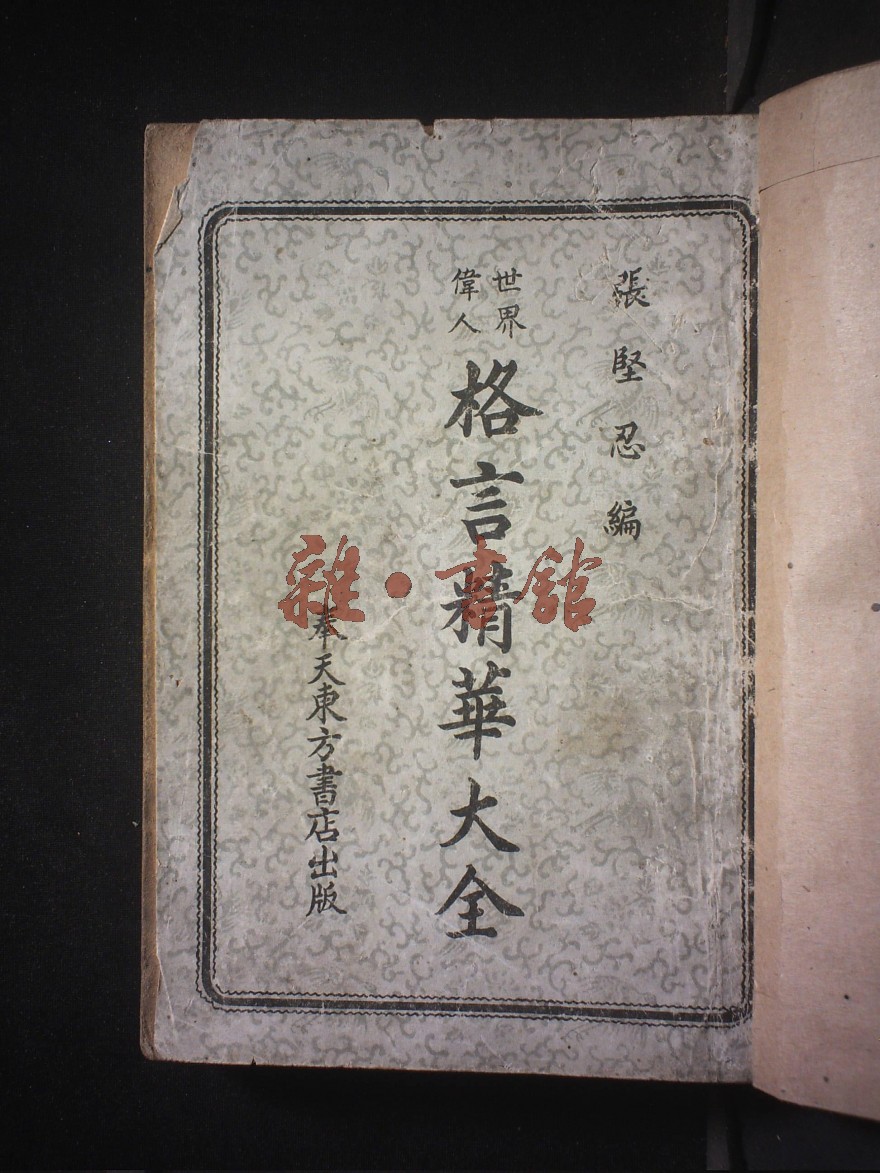 張堅忍編
世界
偉人
格言精華大全
奉天東方書店出版
雜·書館